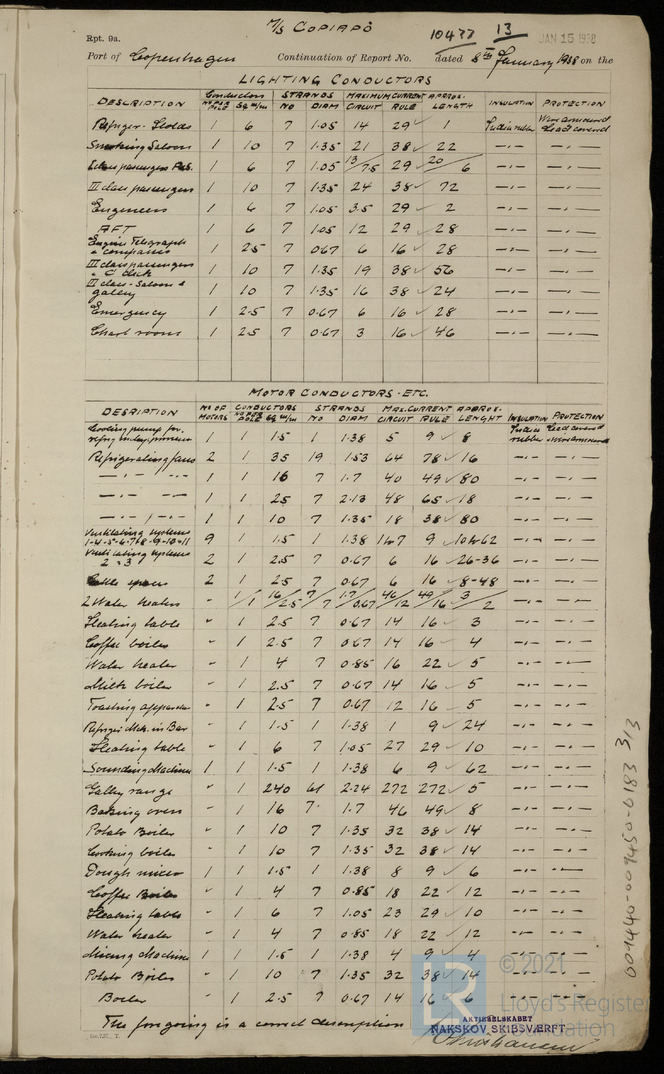 M/S COPIAPÒ
Rpt. 9a.
10477 13 JAN 15 1938
Port of Copenhagen Continuation of Report No. dated 8th January 1938 on the
LIGHTING CONDUCTORS
DESCRIPTION CONDUCTORS NO PER POLE SQ m/m STRANDS NO DIAM MAXIMUM CURRENT CIRCUIT RULE APPROX. LENGTH INSULATION PROTECTION
Refriger. Holds 1 6 7 1.05 14 29 ✓ 1 India rubber Wire armoured Lead covered
Smoking Saloon 1 10 7 1.35 21 38 ✓ 22 -"- -"-
passengers 1 6 7 1.05 13/7.5 29 ✓ 20/6 -"- -"-
III class passengers 1 10 7 1.35 24 38 ✓ 72 -"- -"-
Engineers 1 6 7 1.05 3.5 29 ✓ 2 -"- -"-
AFT 1 6 7 1.05 12 29 ✓ 28 -"- -"-
Engine Telegraph & compasses 1 2.5 7 0.67 6 16 ✓ 28 -"- -"-
III class passengers & C deck 1 10 7 1.35 19 38 ✓ 56 -"- -"-
III class - Saloon & galley 1 10 7 1.35 16 38 ✓ 24 -"- -"-
Emergency 1 2.5 7 0.67 6 16 ✓ 28 -"- -"-
Chart room 1 2.5 7 0.67 3 16 ✓ 46 -"- -"-
MOTOR CONDUCTORS - ETC.
DESRIPTION NO OF MOTORS CONDUCTORS NO PER POLE SQ m/m STRANDS NO DIAM MAX. CURRENT CIRCUIT RULE APPROX. LENGHT INSULATION PROTECTION
Cooling pump for 1 1 1.5 1 1.38 5 9 ✓ 8 India rubber Lead covered Wire armoured
Refrigerating fans 2 1 35 19 1.53 64 78 ✓ 16
-"- -"- 1 1 16 7 1.7 40 49 ✓ 80 -"- -"-
-"- -"- 1 1 25 7 2.13 48 65 ✓ 18 -"- -"-
-"- -"- 1 1 10 7 1.35 18 38 ✓ 80 -"- -"-
Ventilating systems 1-4-5-6-7-8-9-10-11 9 1 1.5 1 1.38 9 ✓ -"- -"-
Ventilating systems 2 & 3 2 1 2.5 7 0.67 6 16 ✓ 26-36 -"- -"-
2 1 2.5 7 0.67 6 16 ✓ 8-48 -"- -"-
2 Water heaters " 1/1 16/2.5 7/7 1.7/0.67 46/12 49/16 ✓ 3/2 -"- -"-
Heating table " 1 2.5 7 0.67 14 16 ✓ 3 -"- -"-
Coffee boiler " 1 2.5 7 0.67 14 16 ✓ 4 -"- -"-
Water heater " 1 4 7 0.85 16 22 ✓ 5 -"- -"-
Milk boiler " 1 2.5 7 0.67 14 16 ✓ 5 -"- -"-
Toasting apparatus " 1 2.5 7 0.67 12 16 ✓ 5 -"- -"-
Refriger. Mch. in Bar " 1 1.5 1 1.38 1 9 ✓ 24 -"- -"-
Heating table " 1 6 7 1.05 27 29 ✓ 10 -"- -"-
Sounding Machine 1 1 1.5 1 1.38 6 9 ✓ 62 -"- -"-
Galley range " 1 240 61 2.24 272 272 ✓ 5 -"- -"-
Baking oven " 1 16 7 1.7 46 49 ✓ 8 -"- -"-
Potato Boiler " 1 10 7 1.35 32 38 ✓ 14 -"- -"-
Cooking boiler " 1 10 7 1.35 32 38 ✓ 14 -"- -"-
Dough mixer 1 1 1.5 1 1.38 8 9 ✓ 6 -"- -"-
Coffee Boiler " 1 4 7 0.85 18 22 ✓ 12 -"- -"-
Heating table " 1 6 7 1.05 23 29 ✓ 10 -"- -"-
Water heater " 1 4 7 0.85 18 22 ✓ 12 -"- -"-
Mixing Machine 1 1 1.5 1 1.38 4 9 ✓ 4 -"- -"-
Potato Boiler " 1 10 7 1.35 32 38 ✓ 14 -"- -"-
Boiler " 1 2.5 7 0.67 14 16 ✓ 6 -"- -"-
The forgoing is a correct description
AKTIESELSKABET
NAKSKOV SKIBSVÆRFT
009440-009450-0183 3/3
© 2021
LR Lloyd's Register
Foundation